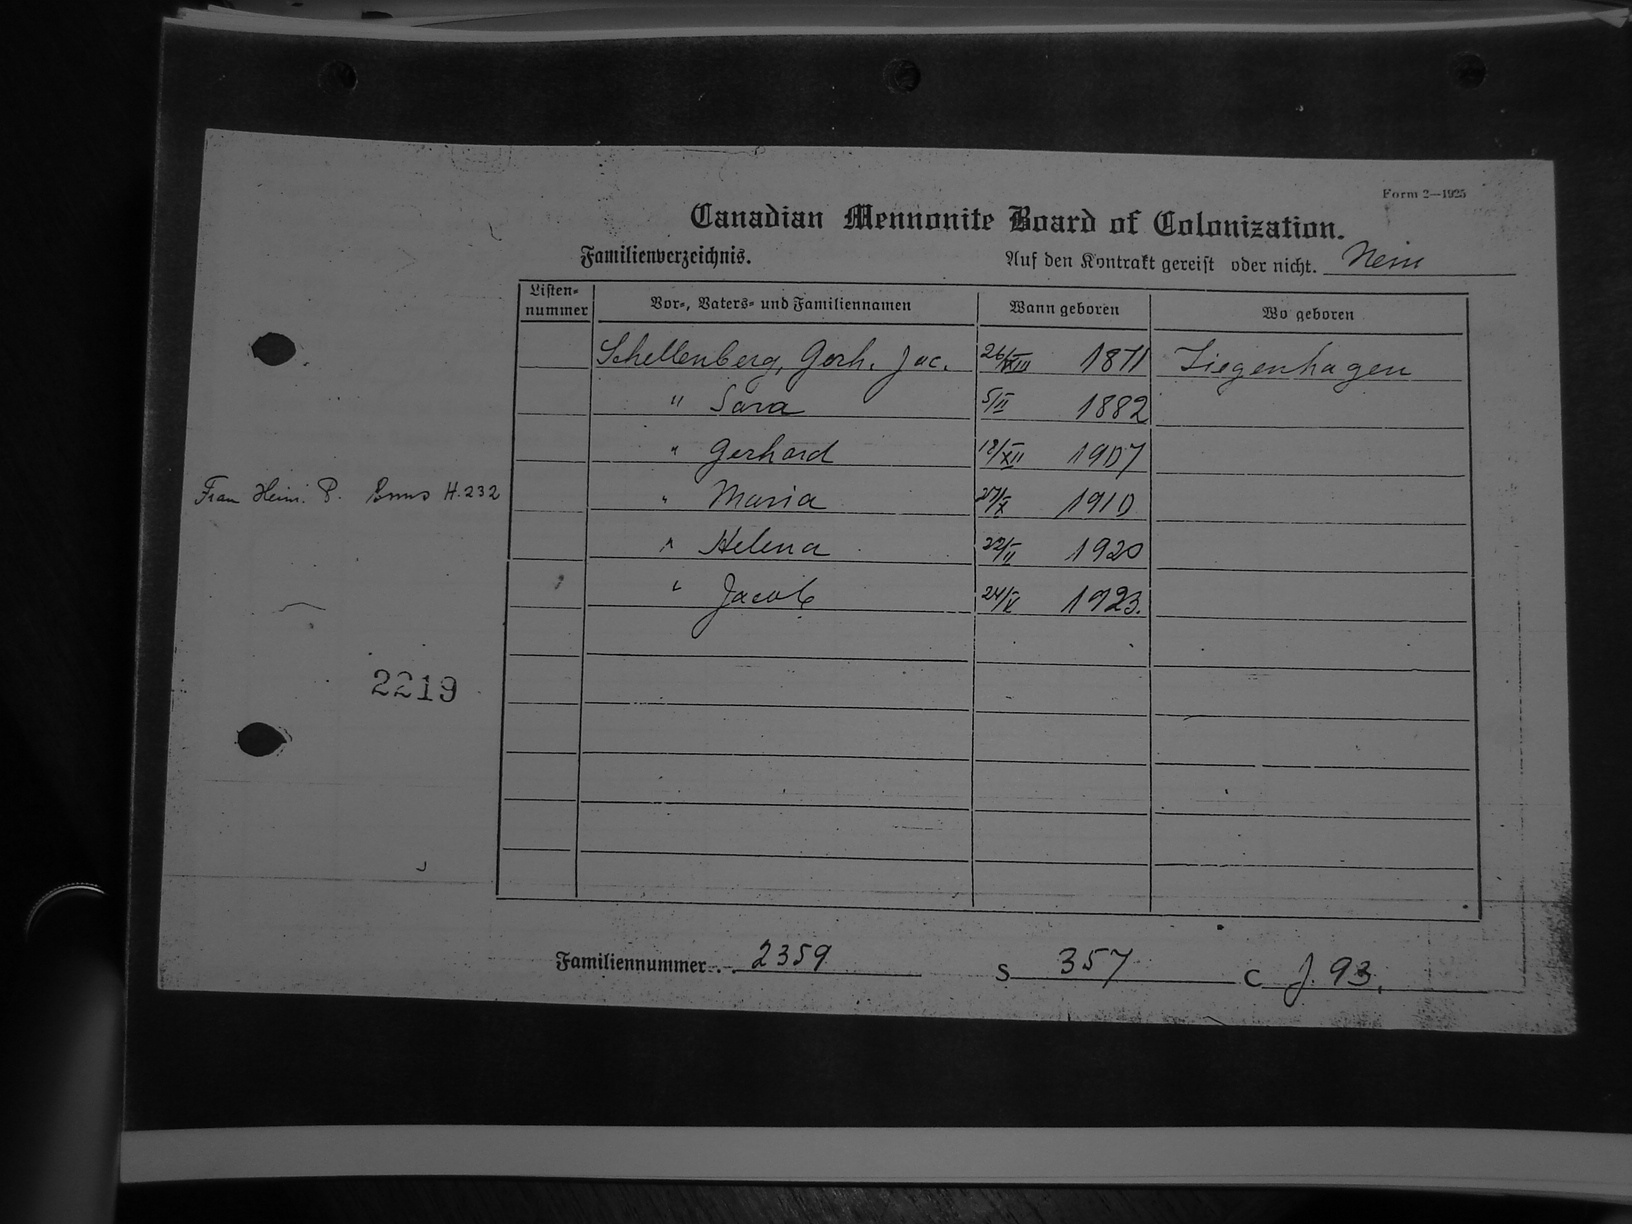 Form 2—1925
Canadian Mennonite Board of Colonization.
Familienverzeichnis. Auf den Kontrakt gereist oder nicht. Nein
Listen-nummer Vor-, Vaters- und Familiennamen Wann geboren Wo geboren
Schellenberg, Gerh. Jac. 1871 Ziegenhagen
" Sara 5/II 1882
" Gerhard 18/XII 1907
Frau Heinr. P. Enns H.232 " Maria 27/X 1910
" Helena 22/II 1920
" Jacob 24/V 1923.
2219
Familiennummer 2359 S 357 C J. 93.